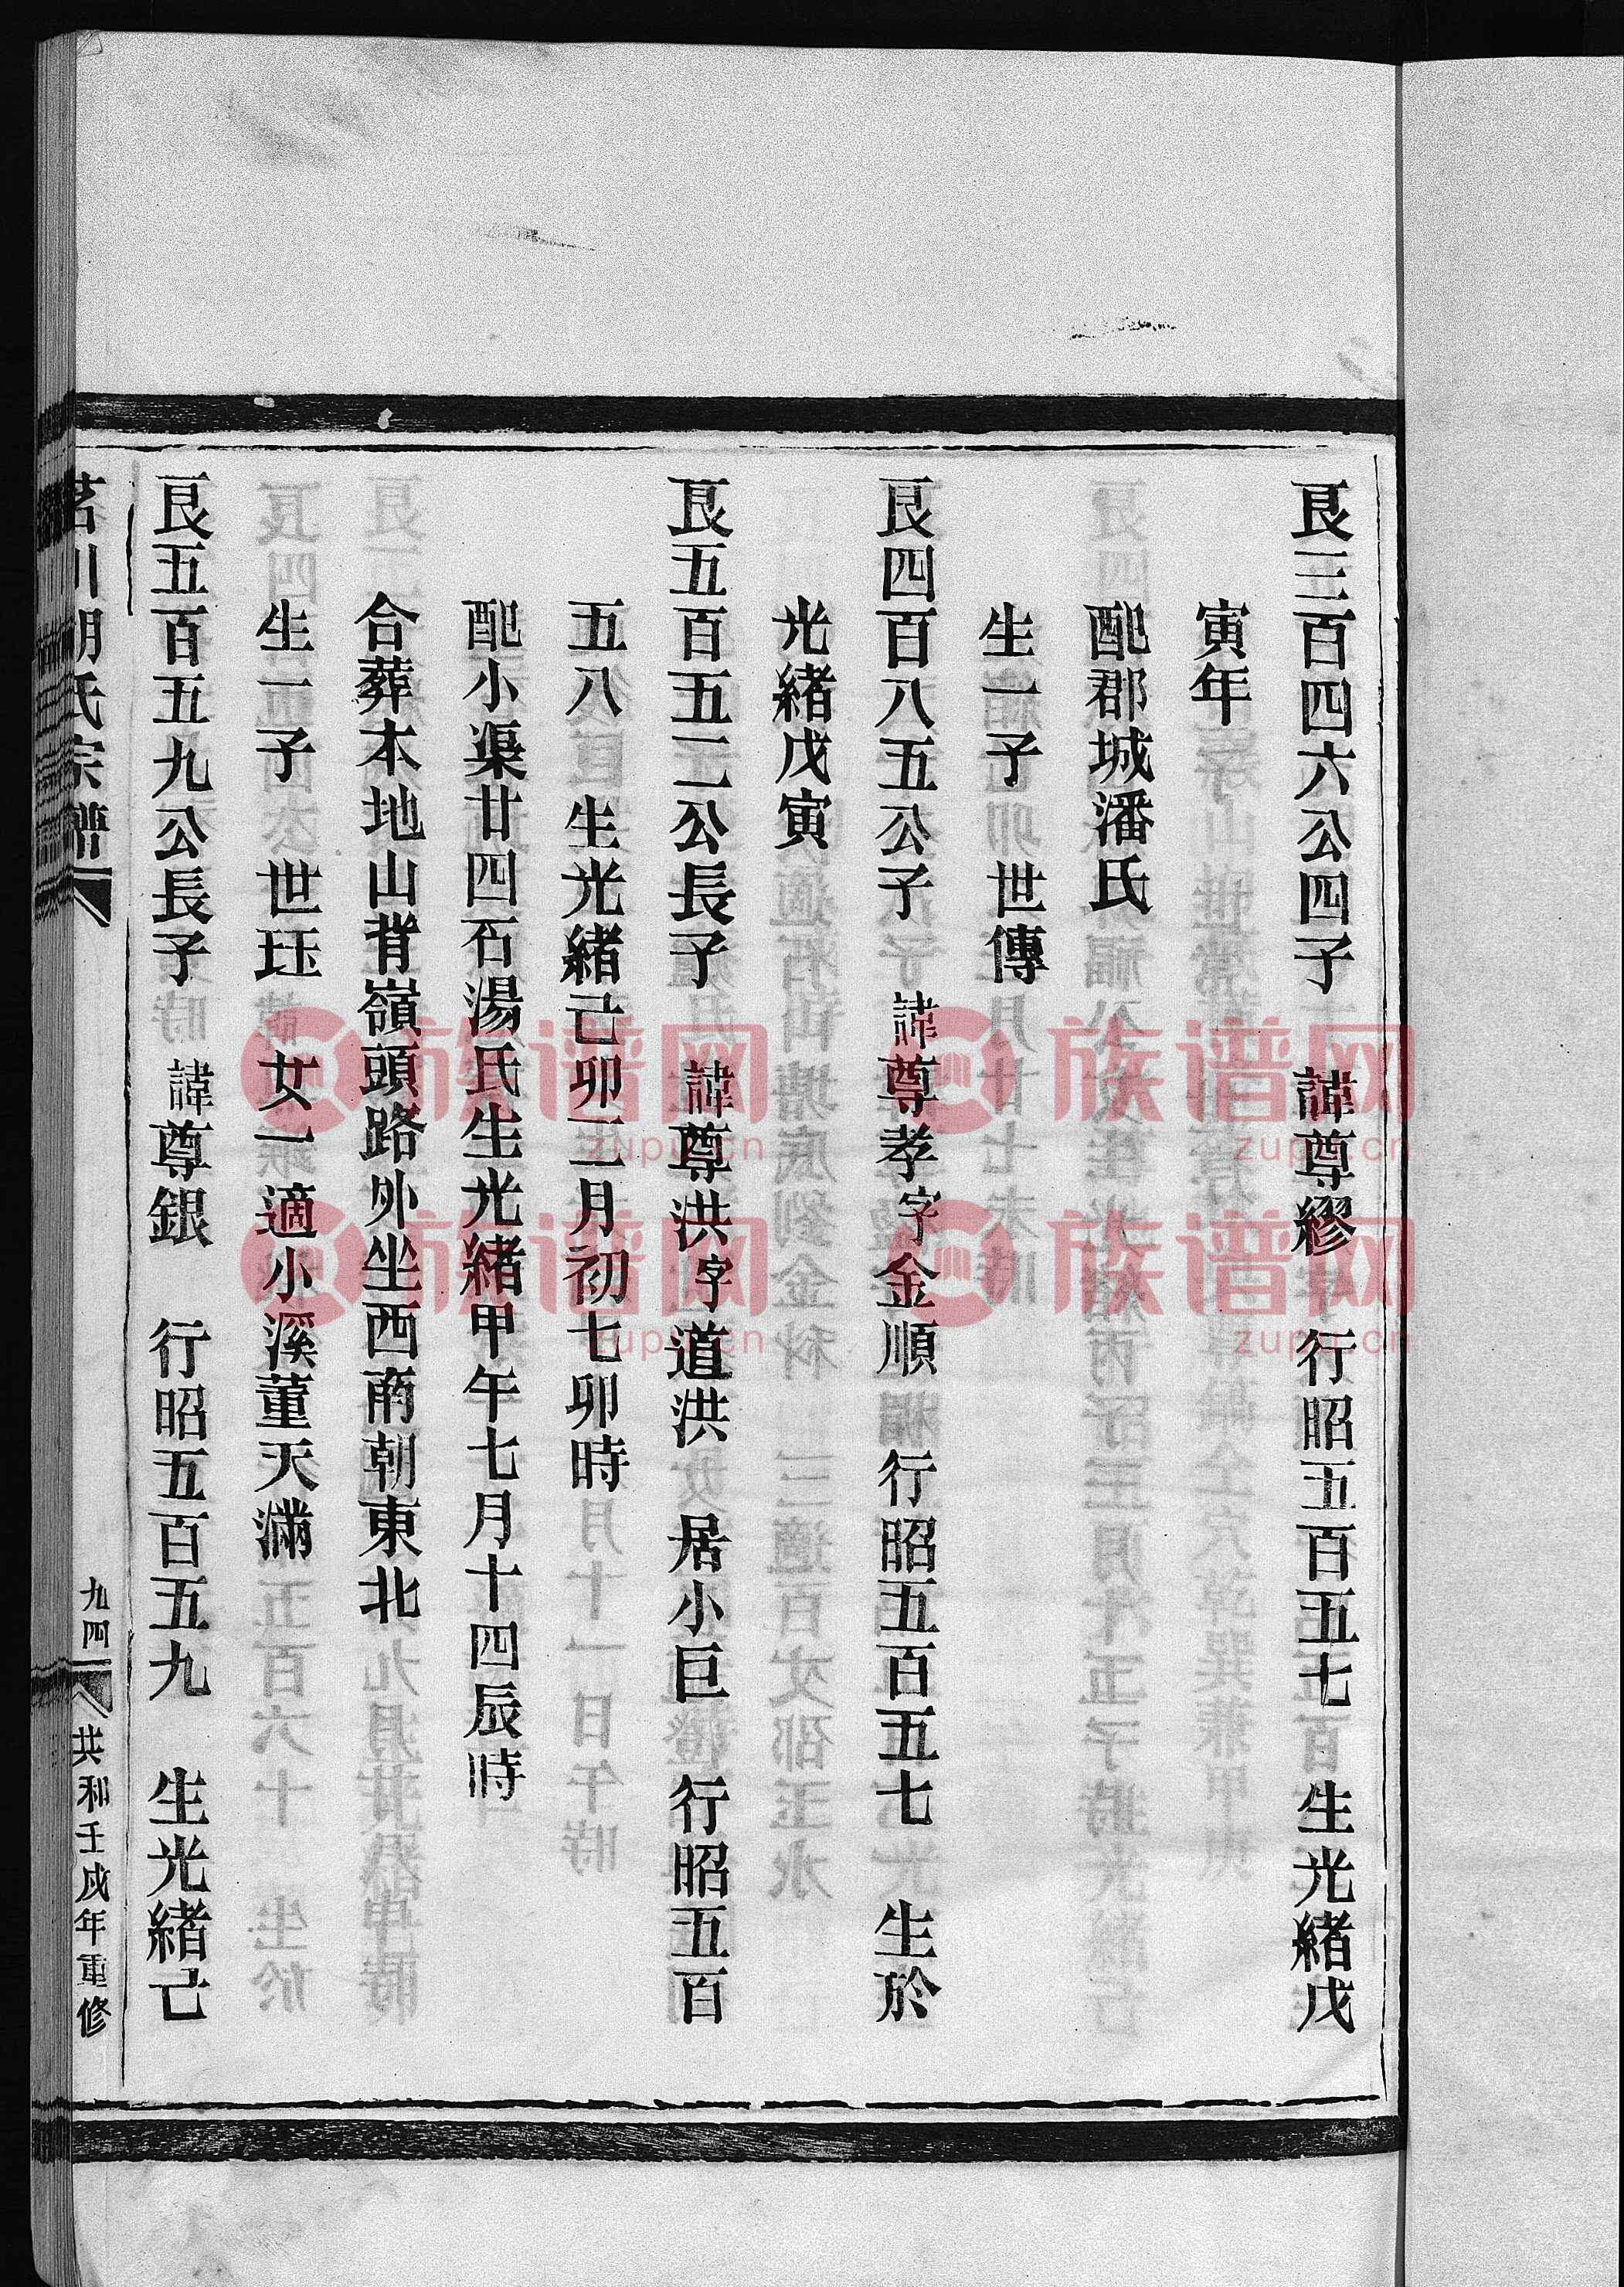 良三百四六公四子 諱尊繆 行昭五百五七 生光緒戊
寅年
配郡城潘氏
生一子 世傳
良四百八五公子 諱尊孝字金順 行昭五百五七 生於
光緒戊寅
良五百五二公長子 諱尊洪字道洪 居小巨 行昭五百
五八 生光緒己卯二月初七卯時
配小渠廿四石湯氏生光緒甲午七月十四辰時
合葬本地山背嶺頭路外坐西南朝東北
生一子 世玨 女一適小溪董天滿
良五百五九公長子 諱尊銀 行昭五百五九 生光緒己
茗川胡氏宗譜
九四
共和壬戌年重修
族谱网
zupu.cn
族谱网
zupu.cn
族谱网
zupu.cn
族谱网
zupu.cn